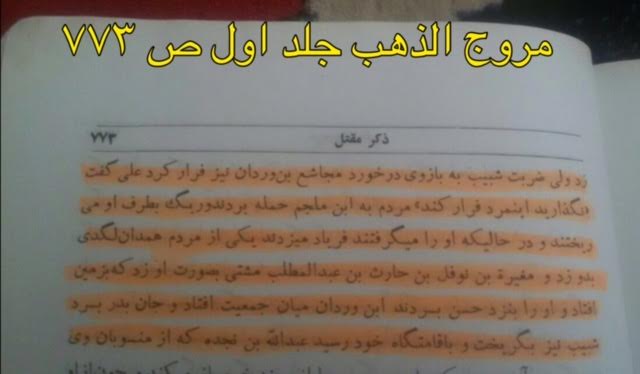 مروج الذهب جلد اول ص ۷۷۳
ذکر مقتل
۷۷۳
زد ولی ضربت شبیب به بازوی درخورد مجاشع بن‌وردان نیز فرار کرد علی گفت
«نگذارید اینمرد فرار کند» مردم به ابن ملجم حمله بردندوریگ بطرف او می
ریختند و در حالیکه او را میگرفتند فریاد میزدند یکی از مردم همدان‌لگدی
بدو زد و مغیرة بن نوفل بن حارث بن عبدالمطلب مشتی بصورت او زد که‌بزمین
افتاد و او را بنزد حسن بردند ابن وردان میان جمعیت افتاد و جان بدر برد
شبیب نیز بگریخت و باقامتگاه خود رسید عبدالله بن نجده که از منسوبان وی